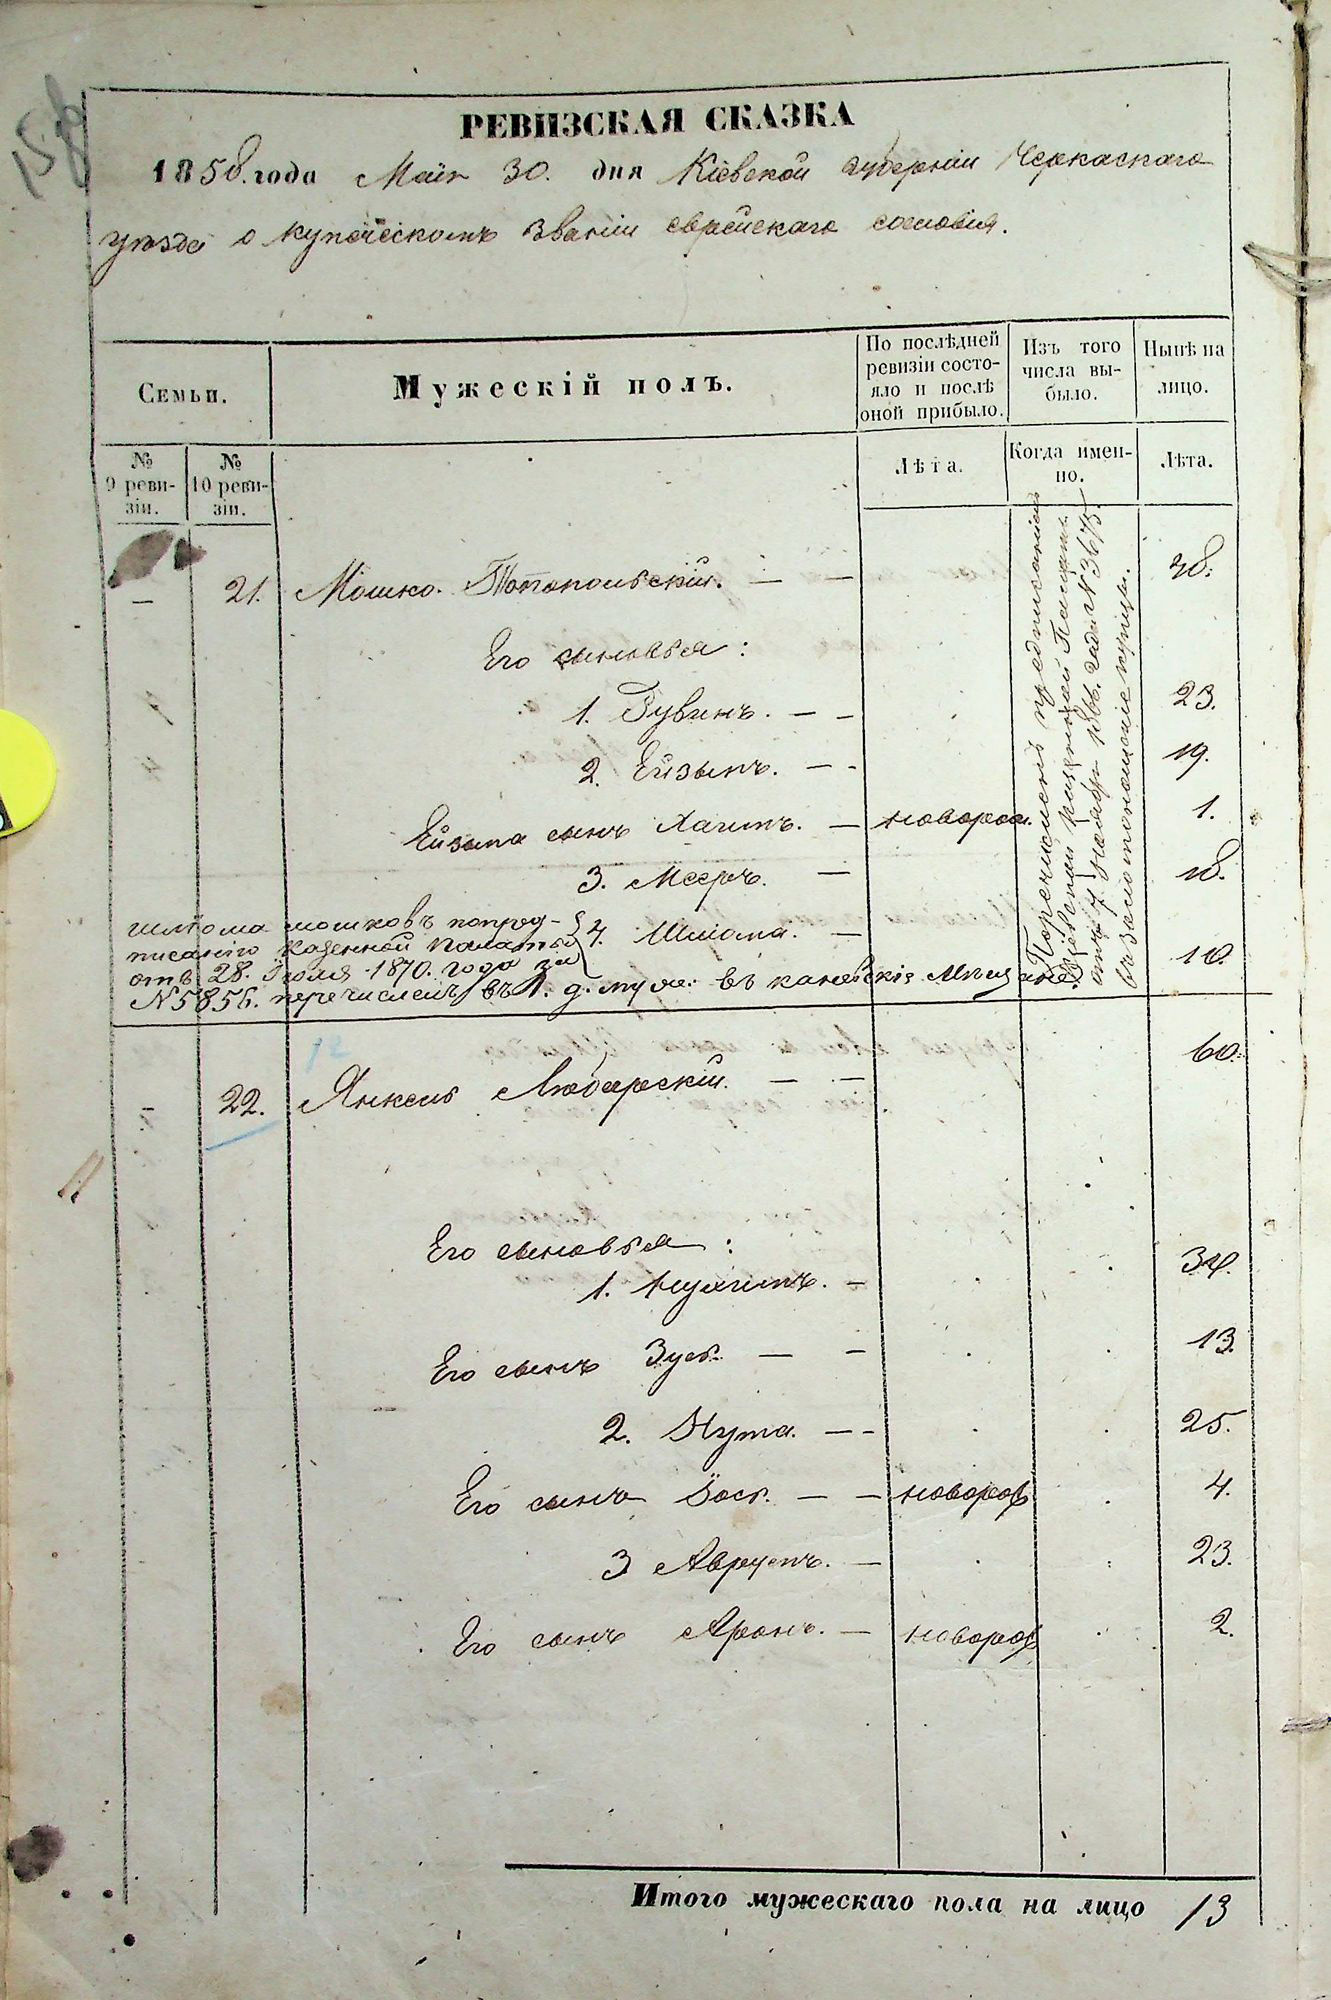 158
РЕВИЗСКАЯ СКАЗКА
1858 года Маія 30. дня Кіевской губерніи Черкаскаго
уезда о купеческомъ званіи еврейскаго сословія.
Семьи.
Мужескій полъ.
По послѣдней ревизіи состояло и послѣ оной прибыло.
Изъ того числа выбыло.
Нынѣ на лицо.
№ 9 ревизіи.
№ 10 ревизіи.
Лѣта.
Когда именно.
Лѣта.
— 21. Мошко. — —
Его сыновья:
1. Рувинъ. — — 23.
2. Ейзыпъ. — — 19.
Ейзыпа сынъ Хаимъ. — новорож. 1.
3. Мееръ. — 18.
4. Шліома. — 10.
Шліома Мошковъ попред-
писанію Казенной Палаты
отъ 28. Іюля 1870. года за
№ 5856. перечисленъ въ 1. д. муж: въ каневскіе Мѣщане
Перечислены предписаніемъ
Кіевской казенной Палаты
отъ 7 Ноября 1866. года № 3675.
въ золотоношскіе купцы.
22. Янкель Любарскій. — — 60.
Его сыновья:
1. Нухимъ. — 34.
Его сынъ Зусь. — — 13.
2. Нута. — — 25.
Его сынъ Іось. — — новорож 4.
3 Аврумъ. — 23.
Его сынъ Аронъ. — новорож 2.
Итого мужескаго пола на лицо 13